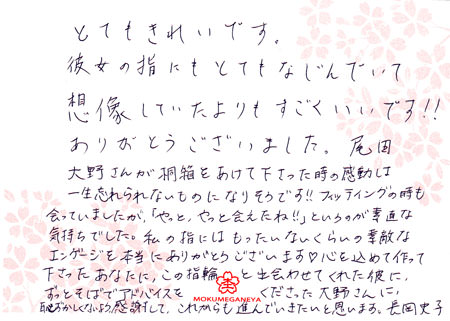 とてもきれいです。
彼女の指にもとてもなじんでいて
想像していたよりもすごくいいです!!
ありがとうございました。 尾田
大野さんが桐箱をあけて下さった時の感動は
一生忘れられないものになりそうです!! フィッティングの時も
会っていましたが、「やっと、やっと会えたね!!」というのが素直な
気持ちでした。私の指にはもったいないくらいの素敵な
エンゲージを本当にありがとうございます♡心を込めて作って
下さったあなたに、この指輪と出会わせてくれた彼に、
ずっとそばでアドバイスをくださった大野さんに、
恥ずかしくないよう感謝して、これからも進んでいきたいと思います。長岡史子
MOKUMEGANEYA